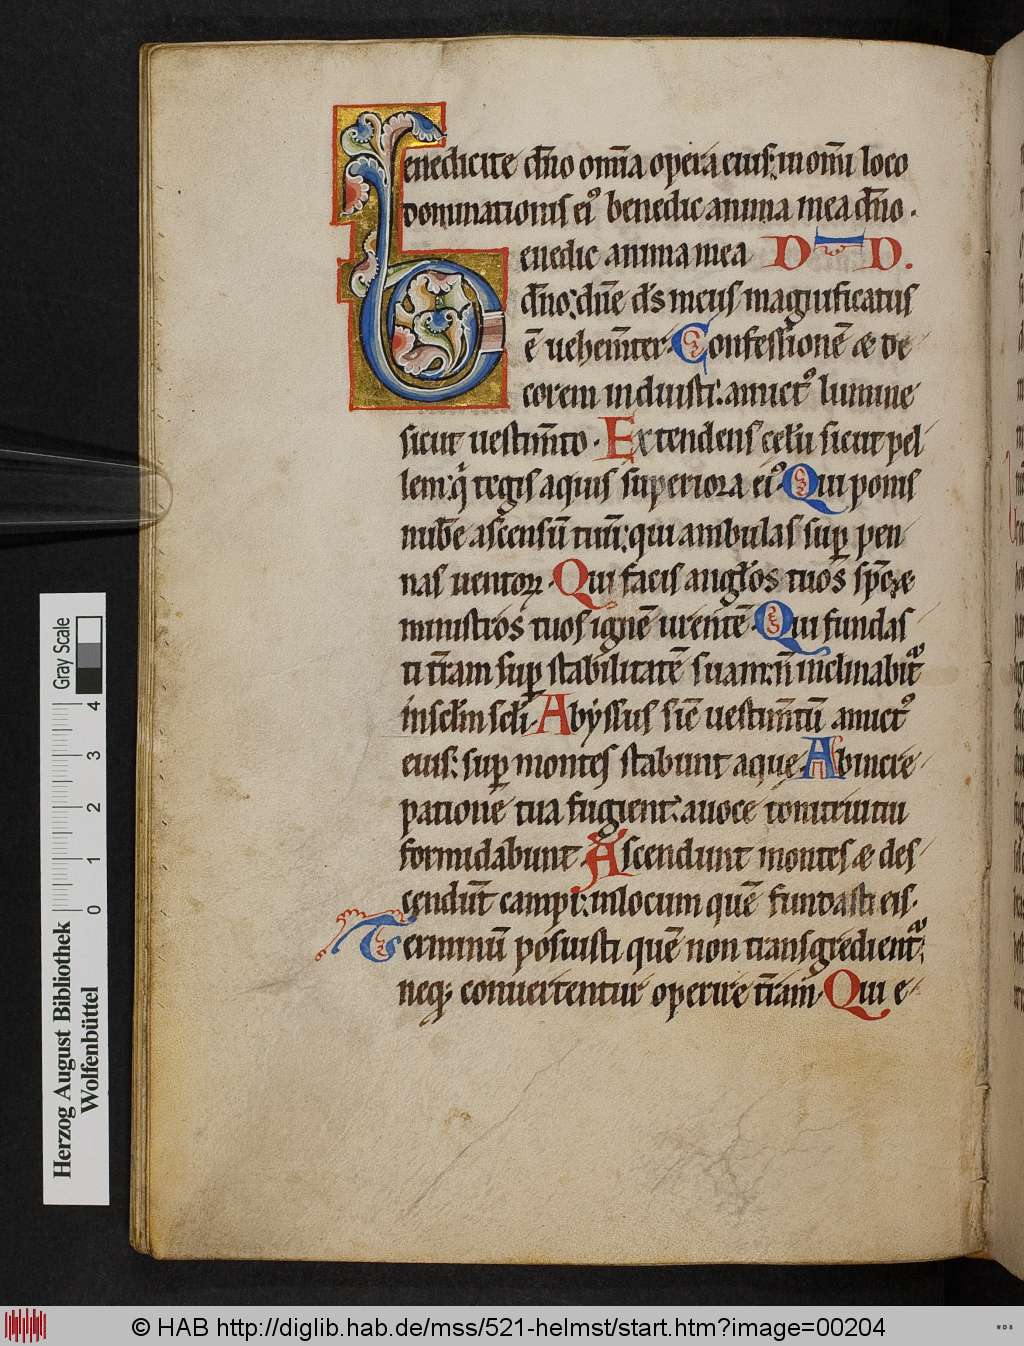 Benedicite dn̄o om̄ia opera eius: in om̄i loco
dominationis eiꝰ benedic anima mea dn̄o.
enedic anima mea D D.
dn̄o: dn̄e ds̄ meus magnificatus
ē uehem̄ter. Confessionē & de
corem induisti: amictꝰ lumine
sicut uestim̄to. Extendens cęlū sicut pel
lem: q̇ tegis aquis superiora eiꝰ. Qui ponis
nubē ascensū tuū: qui ambulas suꝑ pen
nas uentoꝝ. Qui facis angl̄os tuos sp̄c &
ministros tuos ignē urentē. Qui fundas
ti t̄ram suꝑ stabilitatē suam: n̄ inclinabit᷑
in sc̄lm sc̄li. Abyssus sic̄ uestim̄tū amictꝰ
eius: suꝑ montes stabunt aquę. Ab incre
patione tua fugient: a uoce tonitrui tui
formidabunt. Ascendunt montes & des
cendūt campi: in locum quē fundasti eis.
Terminū posuisti quē non transgredient᷑:
neqꝫ conuertentur operire t̄ram. Qui e
Gray Scale
0 1 2 3 4
Herzog August Bibliothek
Wolfenbüttel
© HAB http://diglib.hab.de/mss/521-helmst/start.htm?image=00204